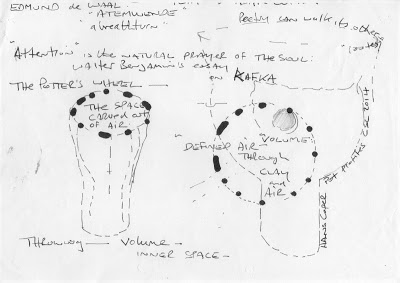 EDMUND de WAAL
"ATEMWENDE"
a breathturn"
Poetry can walk its other
"Attention" is the NATURAL prayer of the Soul:
Walter Benjamin's essay
on KAFKA
The POTTER'S WHEEL
THE SPACE
CARVED out
of AIR
"VOLUME"
DEFINED AIR
Through
CLAY
and
AIR
HANS Coper
Pot Profiles CSR 2014
Throwing — VOLUME -
INNER SPACE -